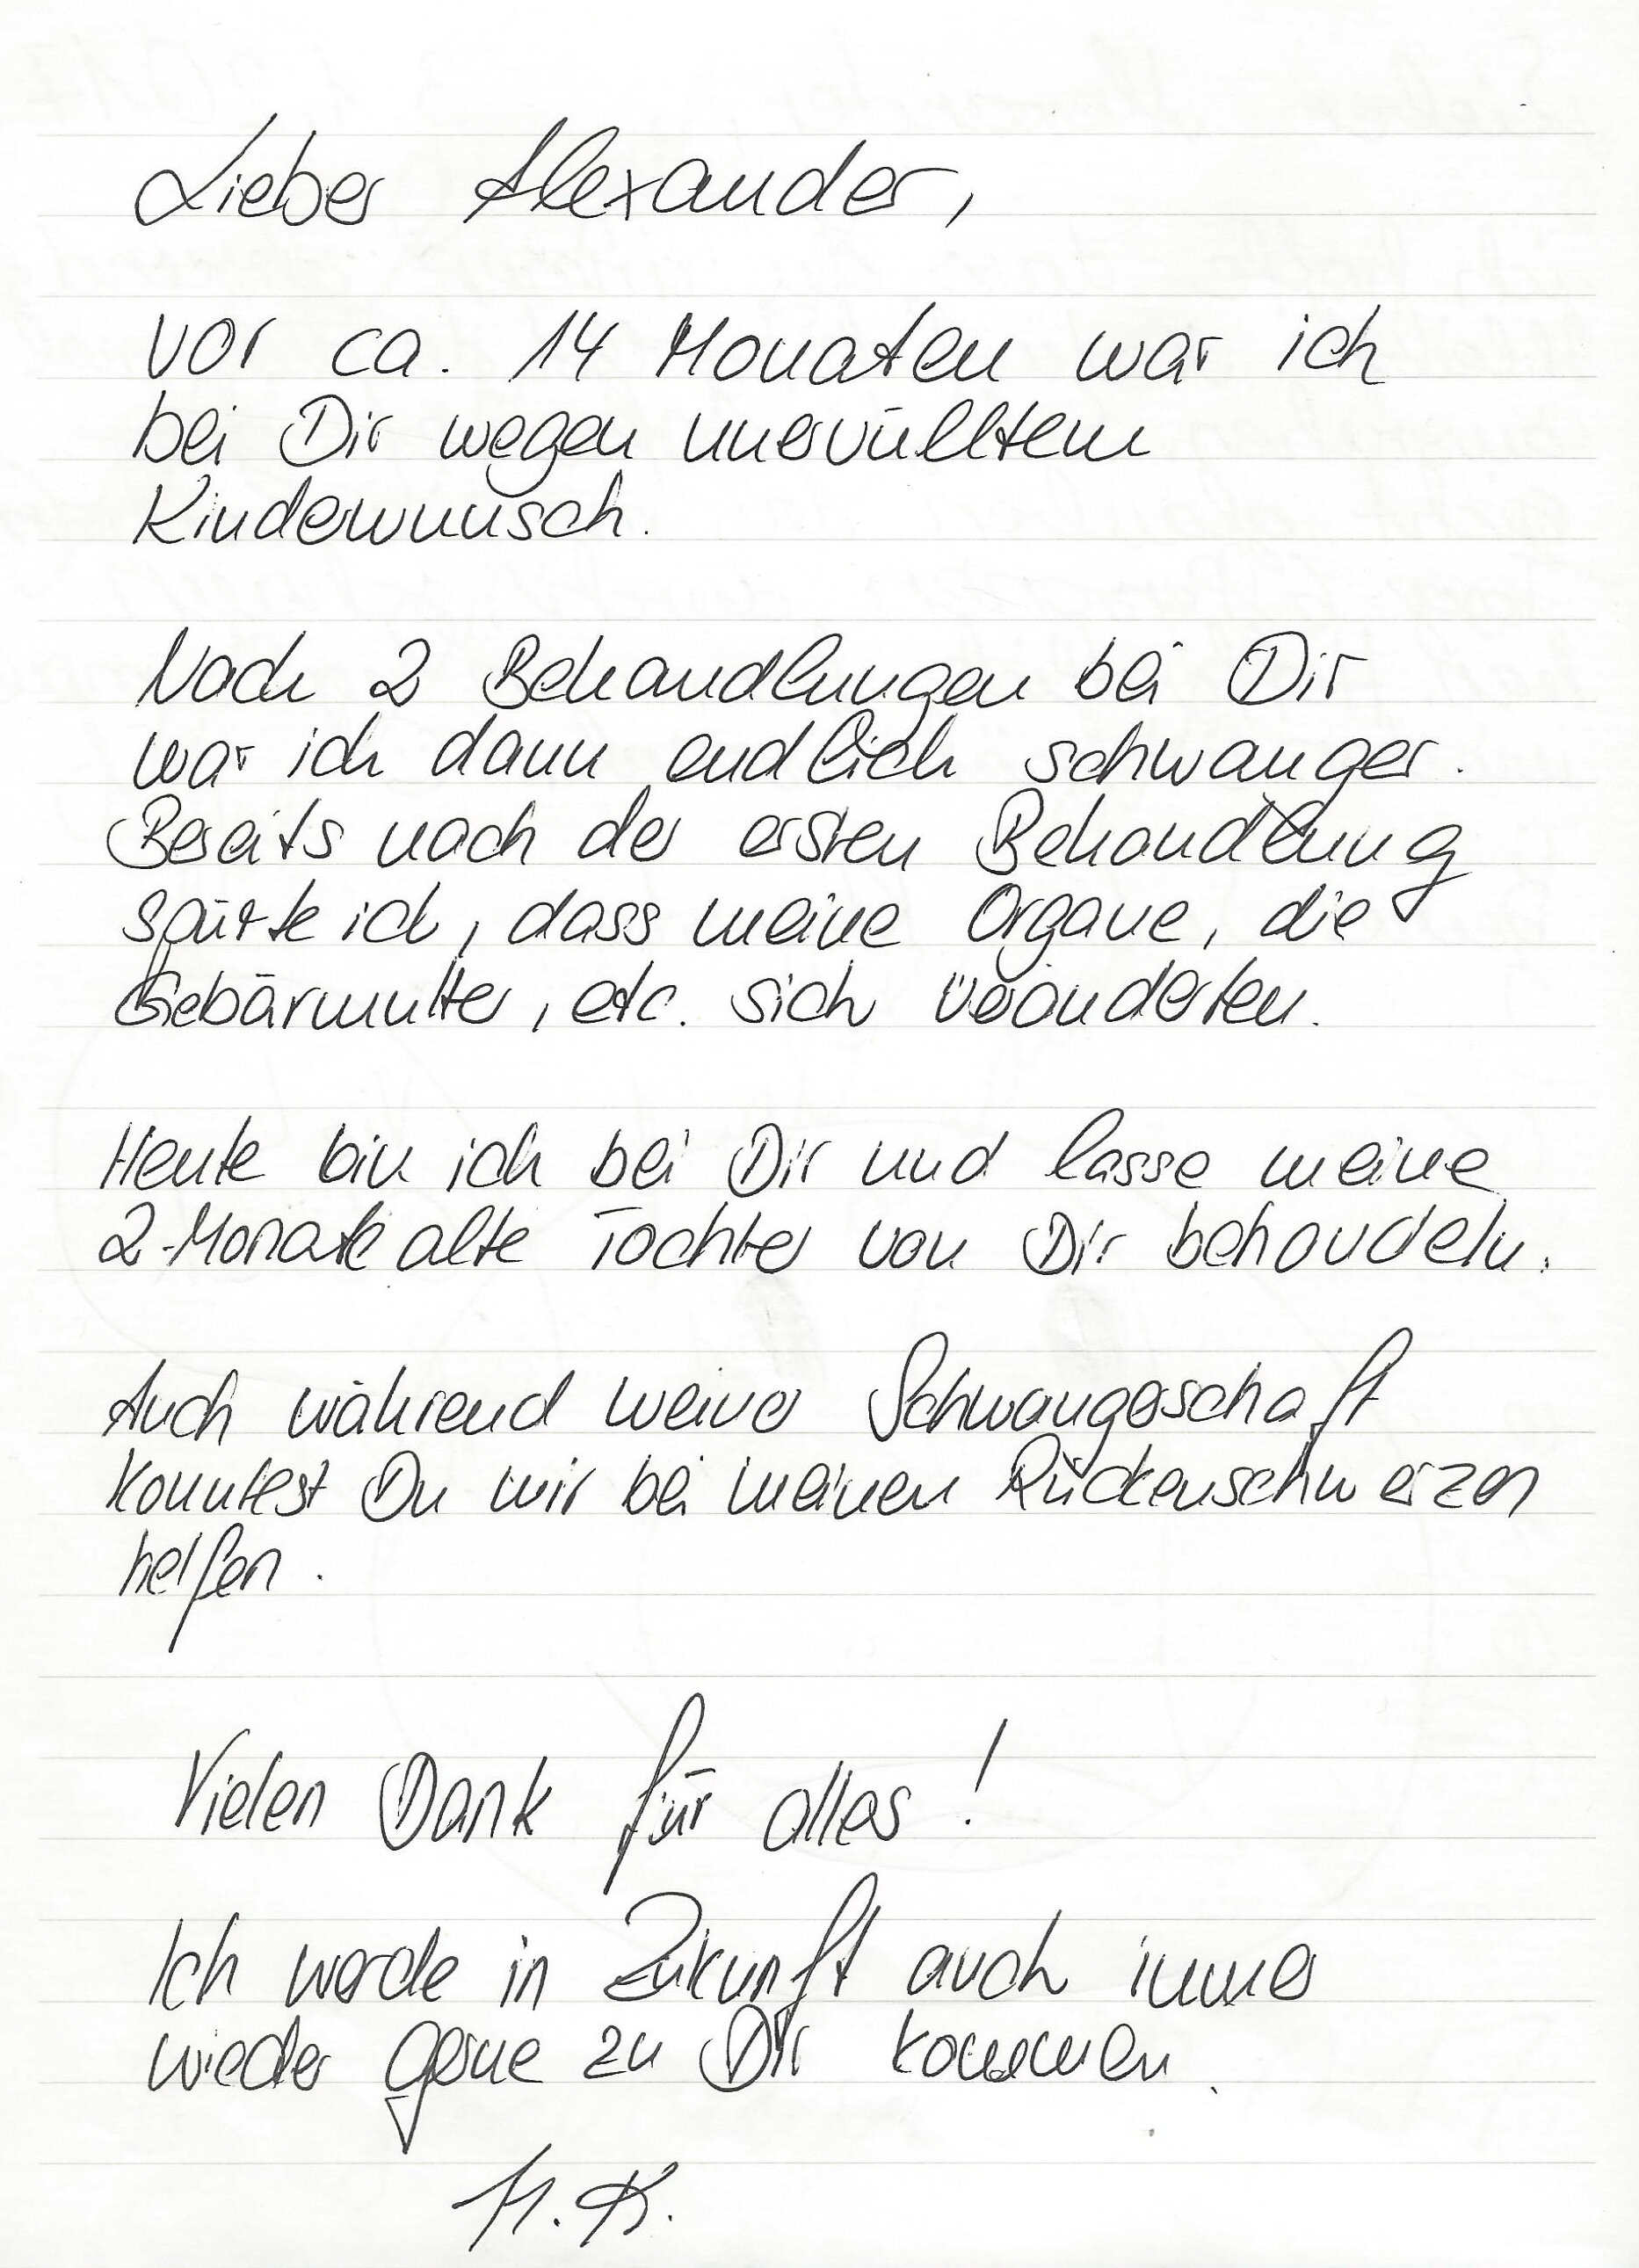 Lieber Alexander,
vor ca. 14 Monaten war ich
bei Dir wegen unervülltem
Kinderwunsch.
Nach 2 Behandlungen bei Dir
war ich dann endlich schwanger.
Bereits nach der ersten Behandlung
spürte ich, dass meine Organe, die
Gebärmutter, etc. sich veränderten.
Heute bin ich bei Dir und lasse meine
2-Monate alte Tochter von Dir behandeln.
Auch während meiner Schwangerschaft
konntest Du mir bei meinen Rückenschmerzen
helfen.
Vielen Dank für alles!
Ich werde in Zukunft auch immer
wieder gerne zu Dir kommen.
M. K.